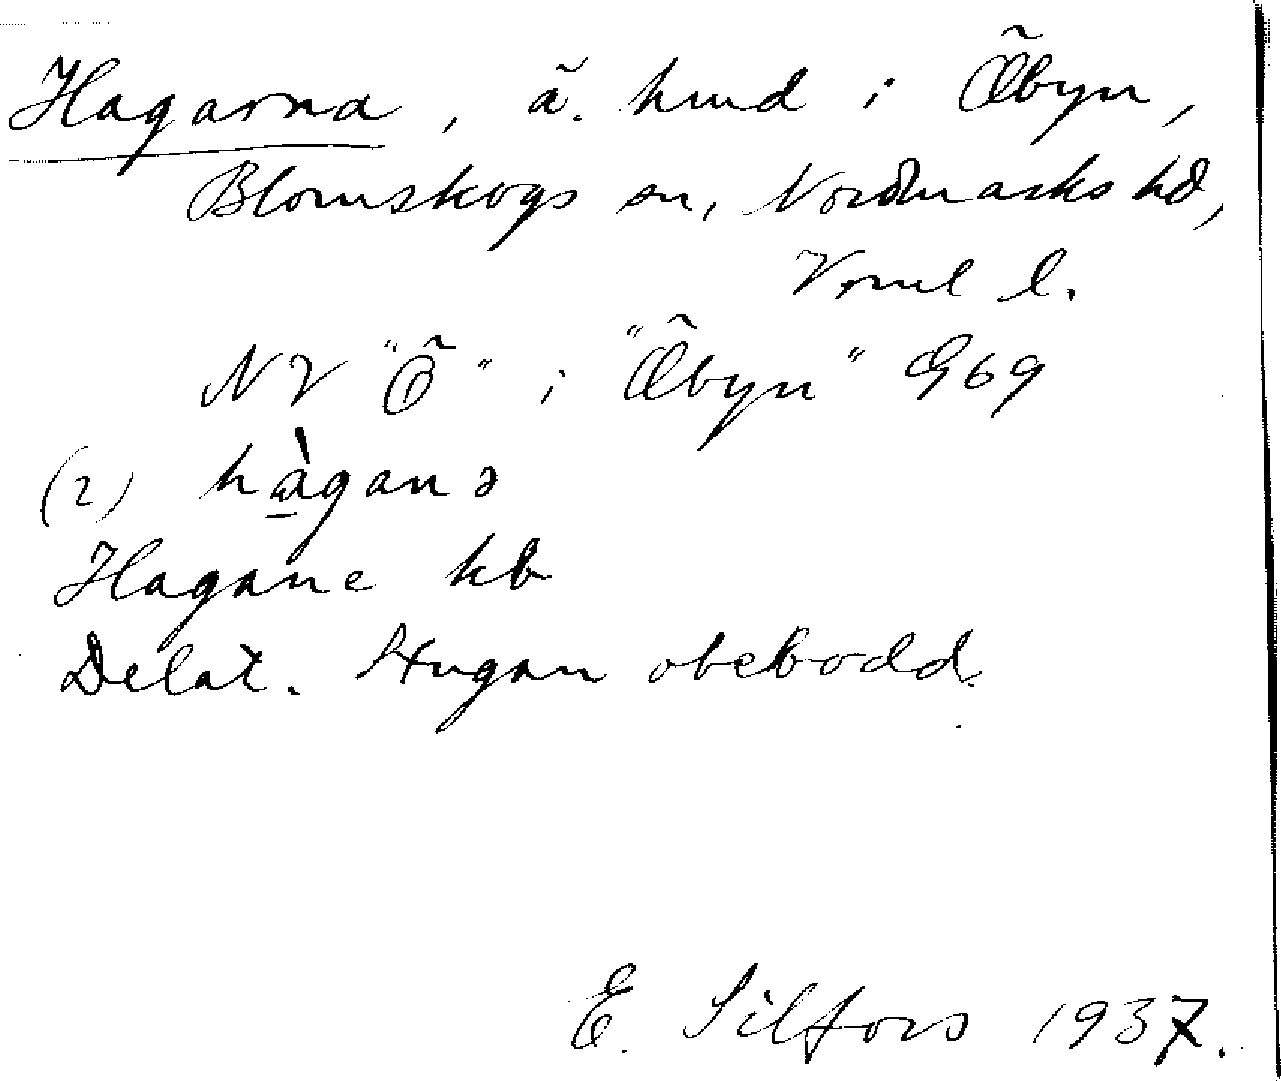 Hagarna, ä. hmd i Öbyn,
Blomskogs sn, Nordmarks hd,
Vrml l.
NV "Ö" i "Öbyn" G69
(2) hàganə
Hagane kb
Delat. Stugan obebodd.
E. Silfors 1937.